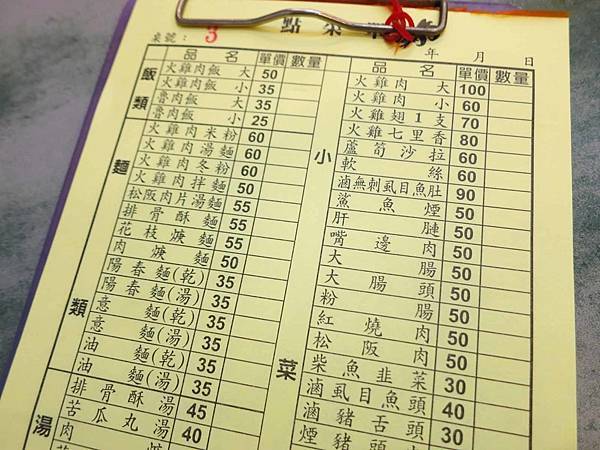 點菜
桌號：3
年 月 日
品名 單價 數量
飯類
火雞肉飯 大 50
火雞肉飯 小 35
魯肉飯 大 35
魯肉飯 小 25
麵類
火雞肉米粉 60
火雞肉湯麵 60
火雞肉冬粉 60
火雞肉拌麵 50
松阪肉片湯麵 55
排骨酥麵 55
花枝焿麵 55
肉焿麵 50
陽春麵(乾) 35
陽春麵(湯) 35
意麵(乾) 35
意麵(湯) 35
油麵(乾) 35
油麵(湯) 35
湯
排骨酥湯 45
苦瓜丸湯 40
肉焿
品名 單價 數量
小菜
火雞肉 大 100
火雞肉 小 60
火雞翅1支 70
火雞七里香 80
蘆筍沙拉 60
軟絲 60
滷無刺虱目魚肚 90
鯊魚煙 50
肝腱 50
嘴邊肉 50
大腸 50
大腸頭 50
粉腸 50
紅燒肉 50
松阪肉 50
柴魚韭菜 30
滷虱目魚頭 40
滷豬舌頭 30
煙豬頭